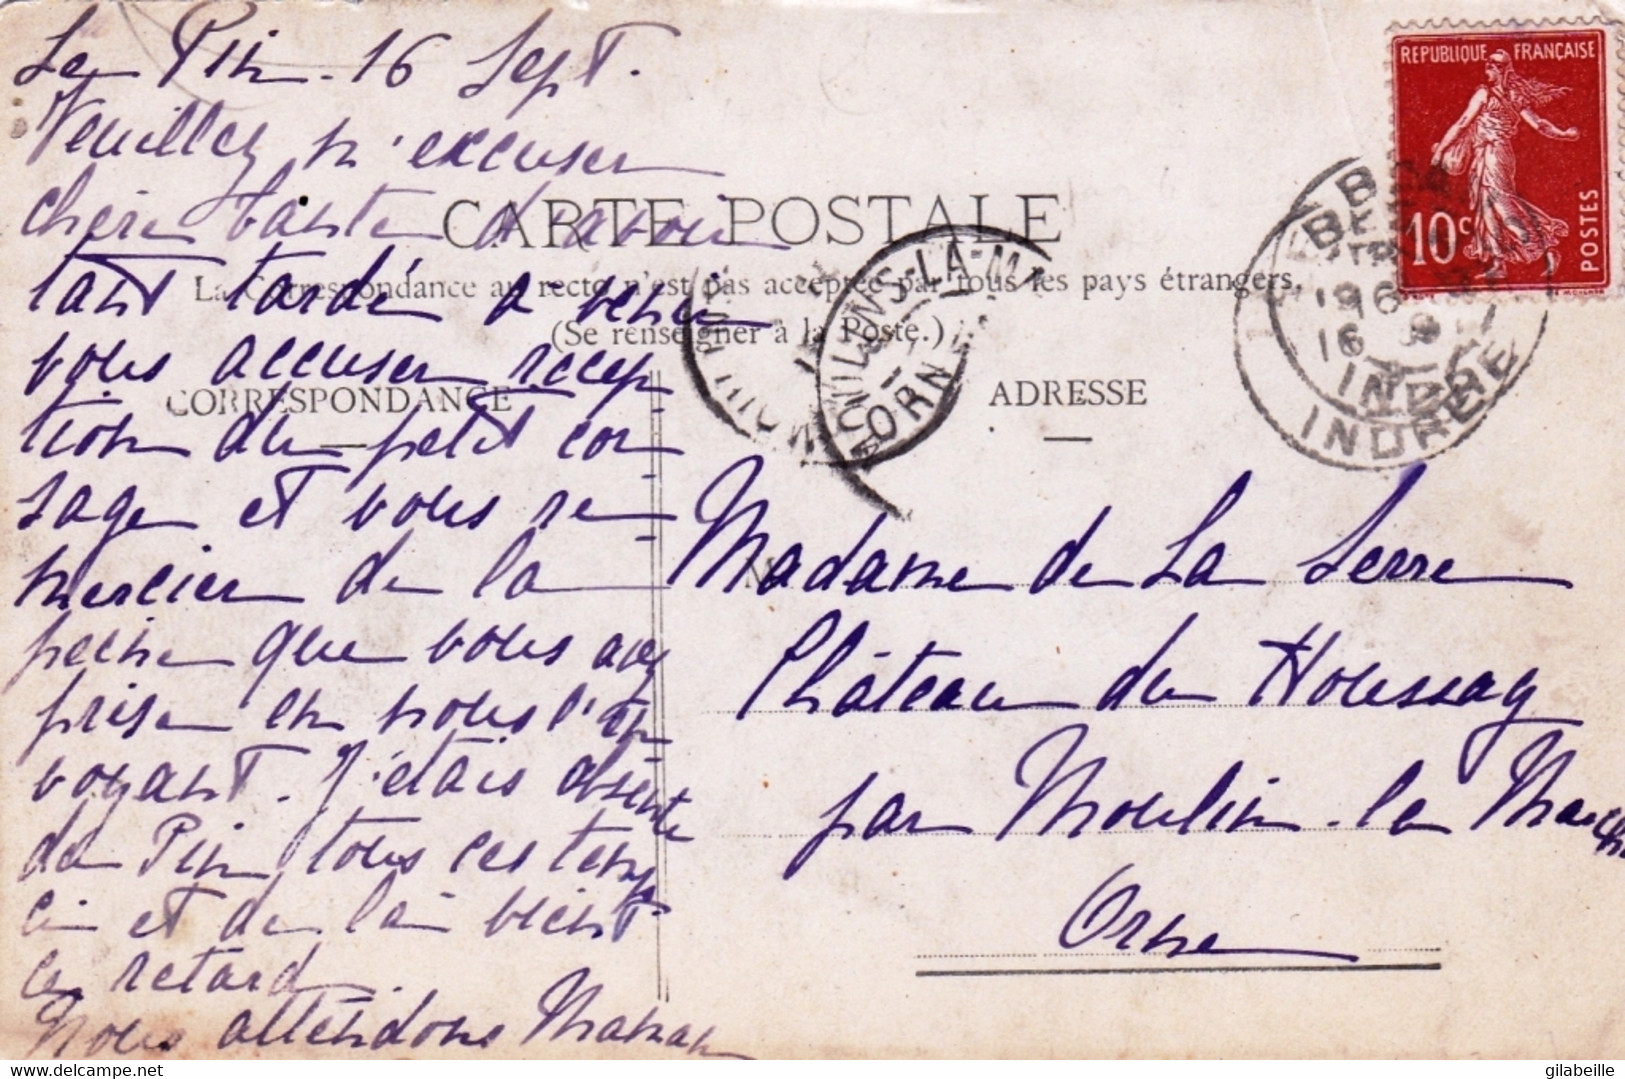 Le Pin. 16 Sept.
Veuillez m'excuser
chère tante d'avoir
tant tardé à venir
vous accuser récep
tion du petit cor
sage et vous re
mercier de la
peine que vous avez
prise en nous l'en
voyant. J'étais absente
du Pin tous ces temps
ci et de là vient
ce retard.
Nous attendons Maman
CARTE POSTALE
La Correspondance au recto n'est pas acceptée par tous les pays étrangers.
(Se renseigner à la Poste.)
CORRESPONDANCE
ADRESSE
Madame de La Serre
Château du Houssay
par Moulin-la-Marche
Orne
REPUBLIQUE FRANÇAISE
10c
POSTES
MOULINS-LA-MA
ORNE
16 9
INDRE
INDRE
gilabeille